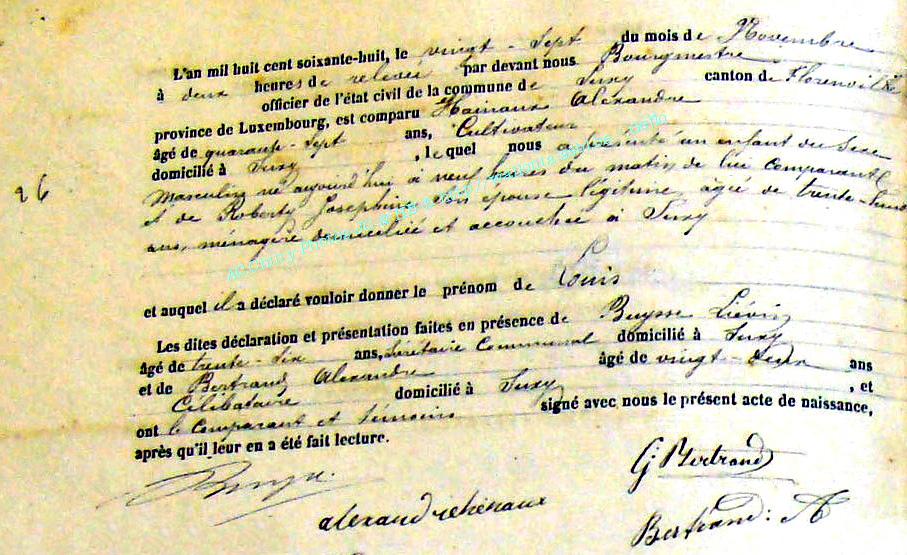 L'an mil huit cent soixante-huit, le vingt-sept du mois de Novembre
à deux heures de relevée par devant nous Bourgmestre
officier de l'état civil de la commune de Suxy canton de Florenville
province de Luxembourg, est comparu Hainaux Alexandre
âgé de quarante-sept ans, Cultivateur
domicilié à Suxy, lequel nous a présenté un enfant du sexe
Masculin né aujourd'hui à neuf heures du matin de lui comparant
et de Roberty Josephine son épouse légitime, âgée de trente-
ans, ménagère domiciliée et accouchée à Suxy
26
et auquel il a déclaré vouloir donner le prénom de Louis
Les dites déclaration et présentation faites en présence de Buysse Liévin
âgé de trente-six ans, Secrétaire Communal domicilié à Suxy
et de Bertrand Alexandre âgé de vingt-deux ans
Célibataire domicilié à Suxy, et
ont le comparant et témoins signé avec nous le présent acte de naissance,
après qu'il leur en a été fait lecture.
Buysse
G. Bertrand
alexandre henaux
Bertrand: A